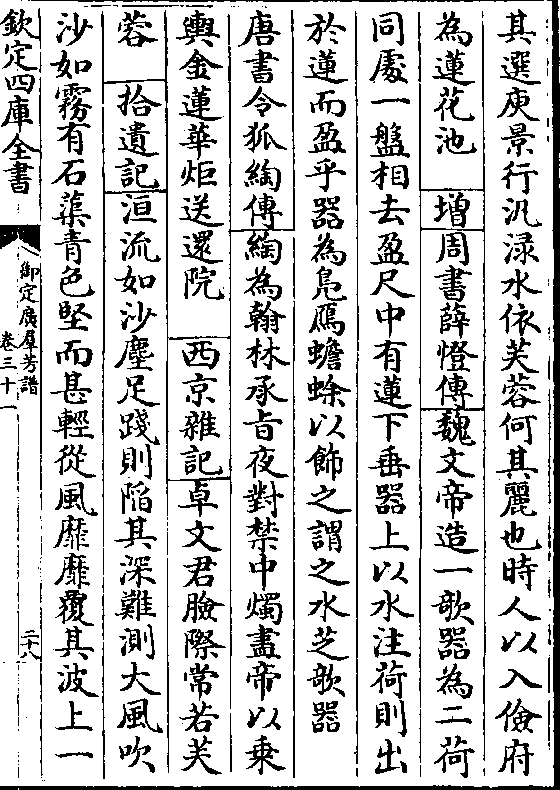 其選庾景行汎渌水依芙蓉何其麗也時人以入儉府
為蓮花池 増周書薛憕傳魏文帝造一欹器為二荷
同處一盤相去盈尺中有蓮下垂器上以水注荷則出
於蓮而盈乎器為鳬鴈蟾蜍以飾之謂之水芝欹器
唐書令狐綯傳綯為翰林承旨夜對禁中燭盡帝以乘
輿金蓮華炬送還院 西京雜記卓文君臉際常若芙
蓉 拾遺記洹流如沙塵足踐則陥其深難測大風吹
沙如霧有石蕖青色堅而甚輕從風靡靡覆其波上一
欽定四庫全書
御定廣羣芳譜
卷三十一
二十八